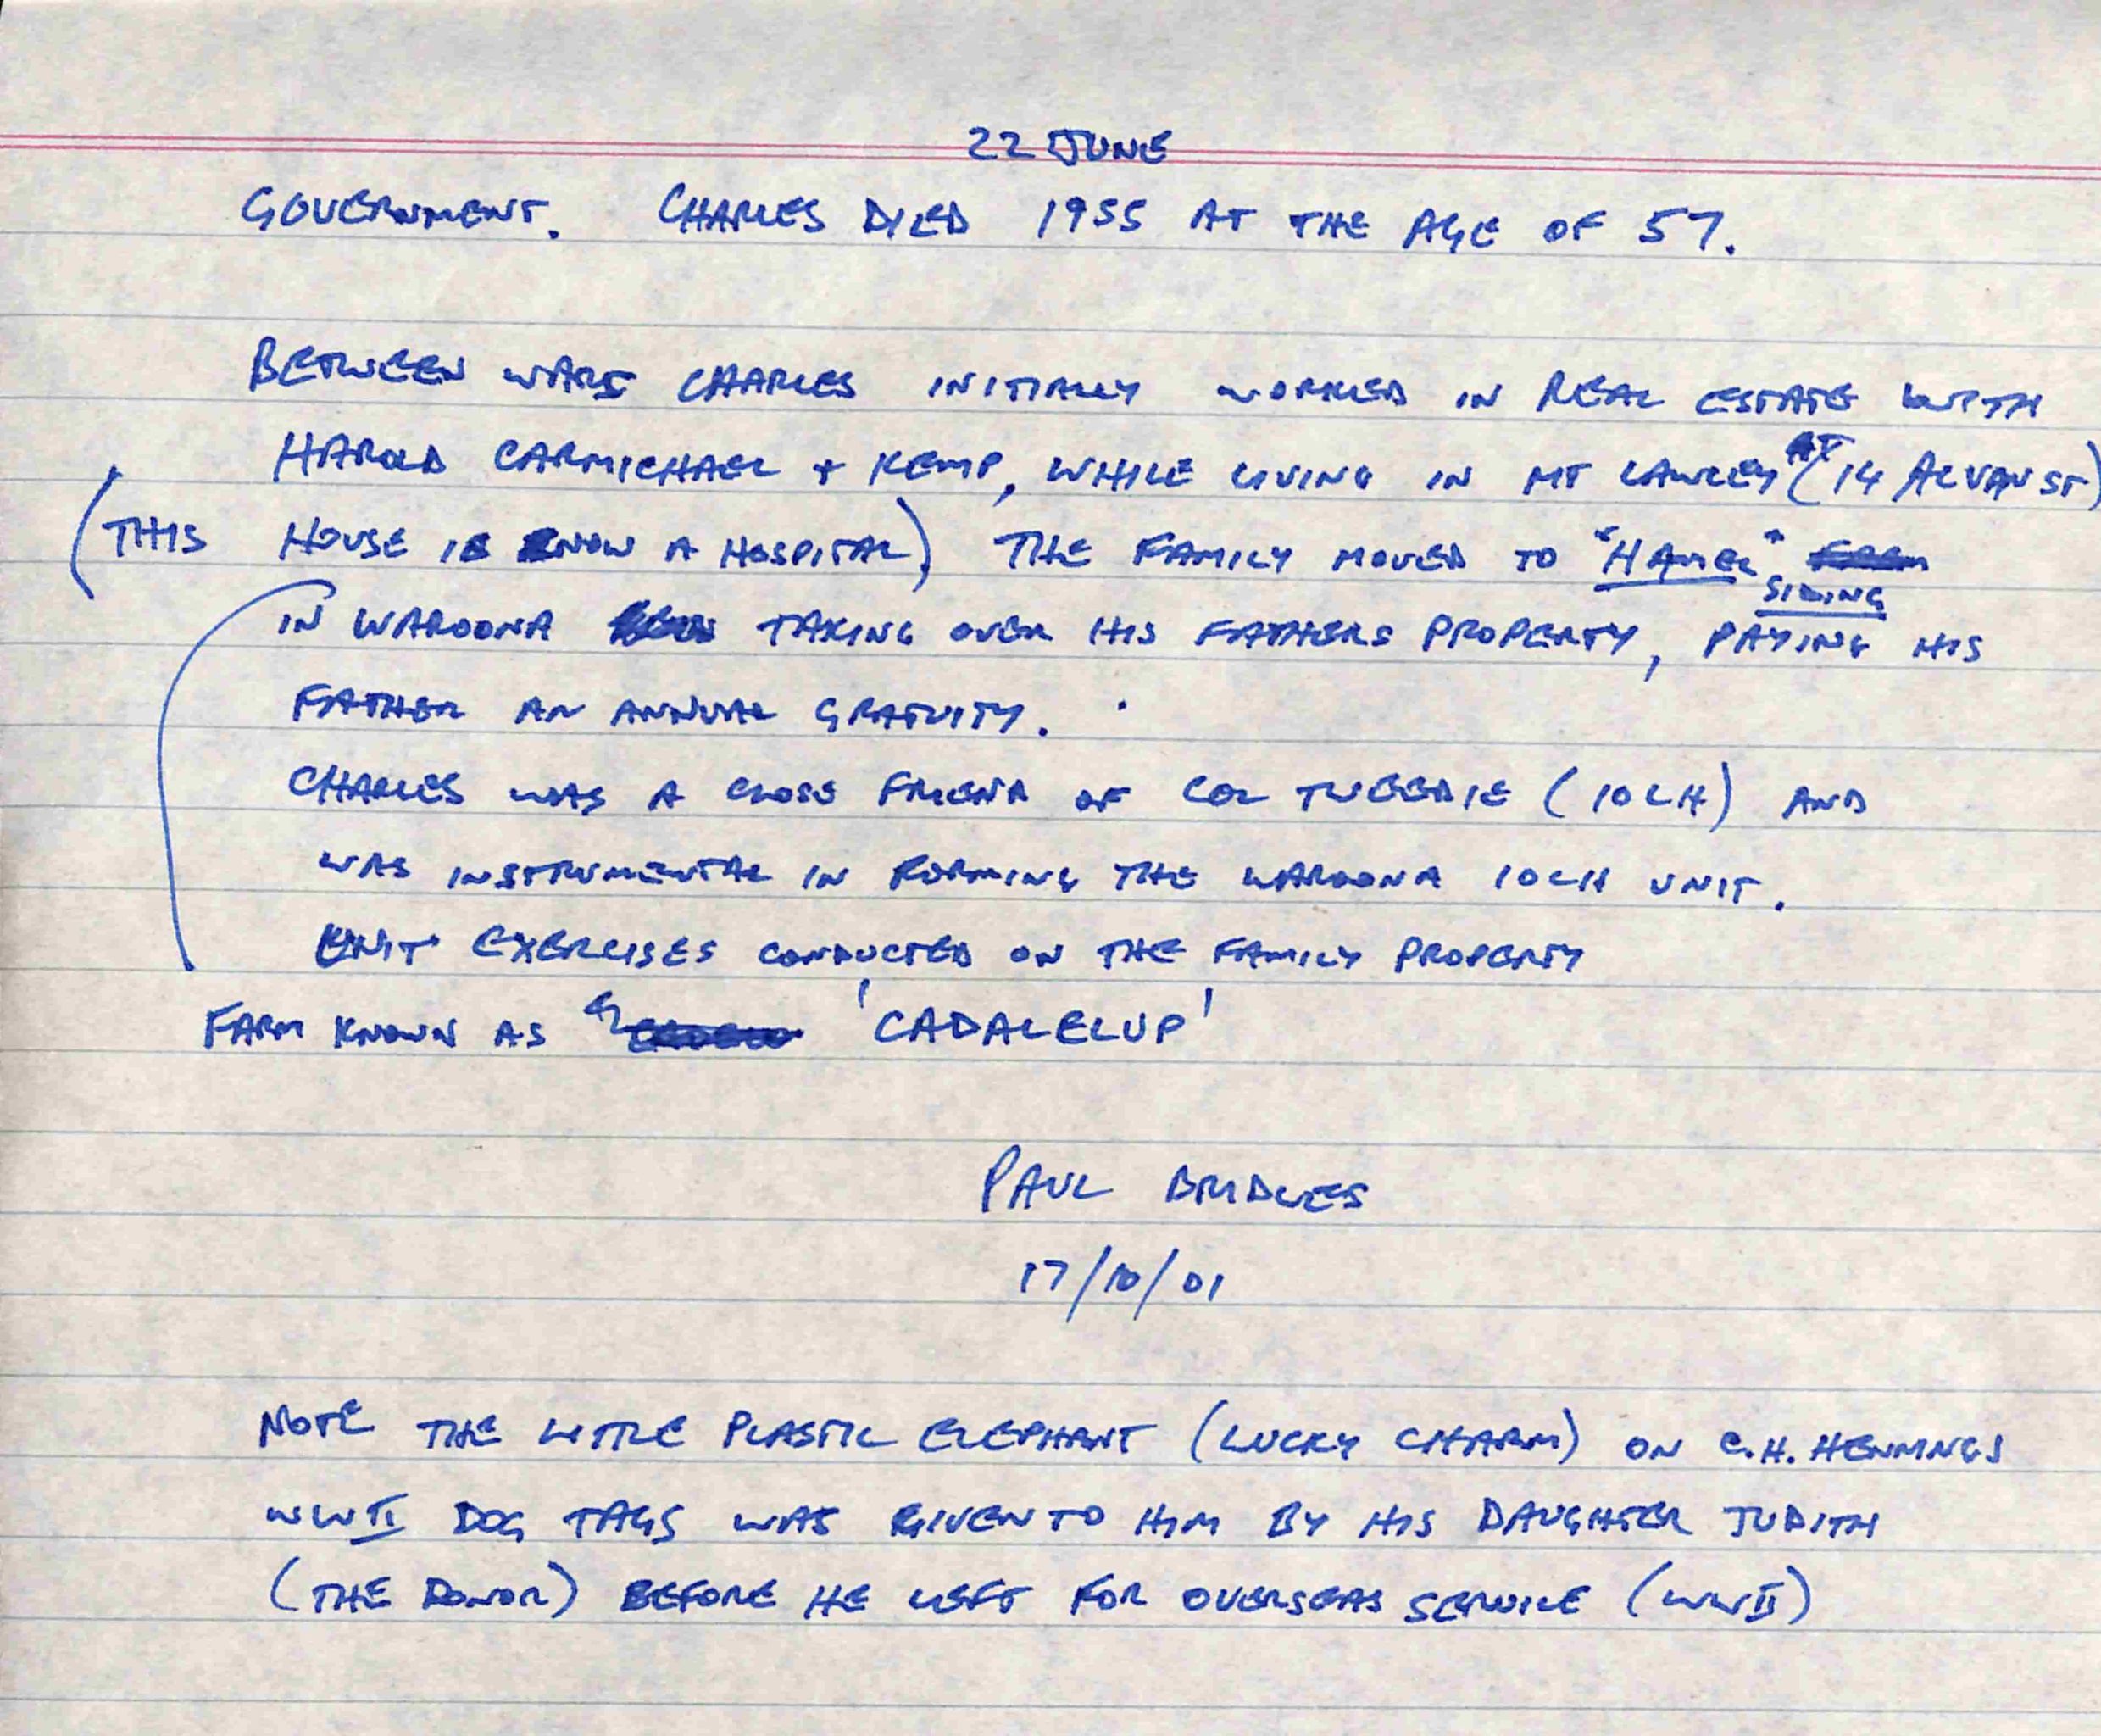 22 JUNE
GOVERNMENT. CHARLES DIED 1955 AT THE AGE OF 57.
BETWEEN WARS CHARLES INITIALLY WORKED IN REAL ESTATE WITH
HAROLD CARMICHAEL + KEMP, WHILE LIVING IN MT LAWLEY AT (14 ALVAN ST)
(THIS HOUSE IS NOW A HOSPITAL) THE FAMILY MOVED TO "HAMEL"
SIDING
IN WAROONA TAKING OVER HIS FATHERS PROPERTY, PAYING HIS
FATHER AN ANNUAL GRATUITY.
CHARLES WAS A CLOSE FRIEND OF COL TWEEDIE (10LH) AND
WAS INSTRUMENTAL IN FORMING THE WAROONA 10LH UNIT.
UNIT EXERCISES CONDUCTED ON THE FAMILY PROPERTY
FARM KNOWN AS 'CADALELUP'
PAUL BRIDGES
17/10/01
NOTE THE LITTLE PLASTIC ELEPHANT (LUCKY CHARM) ON C.H. HENNINGS
WWII DOG TAGS WAS GIVEN TO HIM BY HIS DAUGHTER JUDITH
(THE DONOR) BEFORE HE LEFT FOR OVERSEAS SERVICE (WWII)